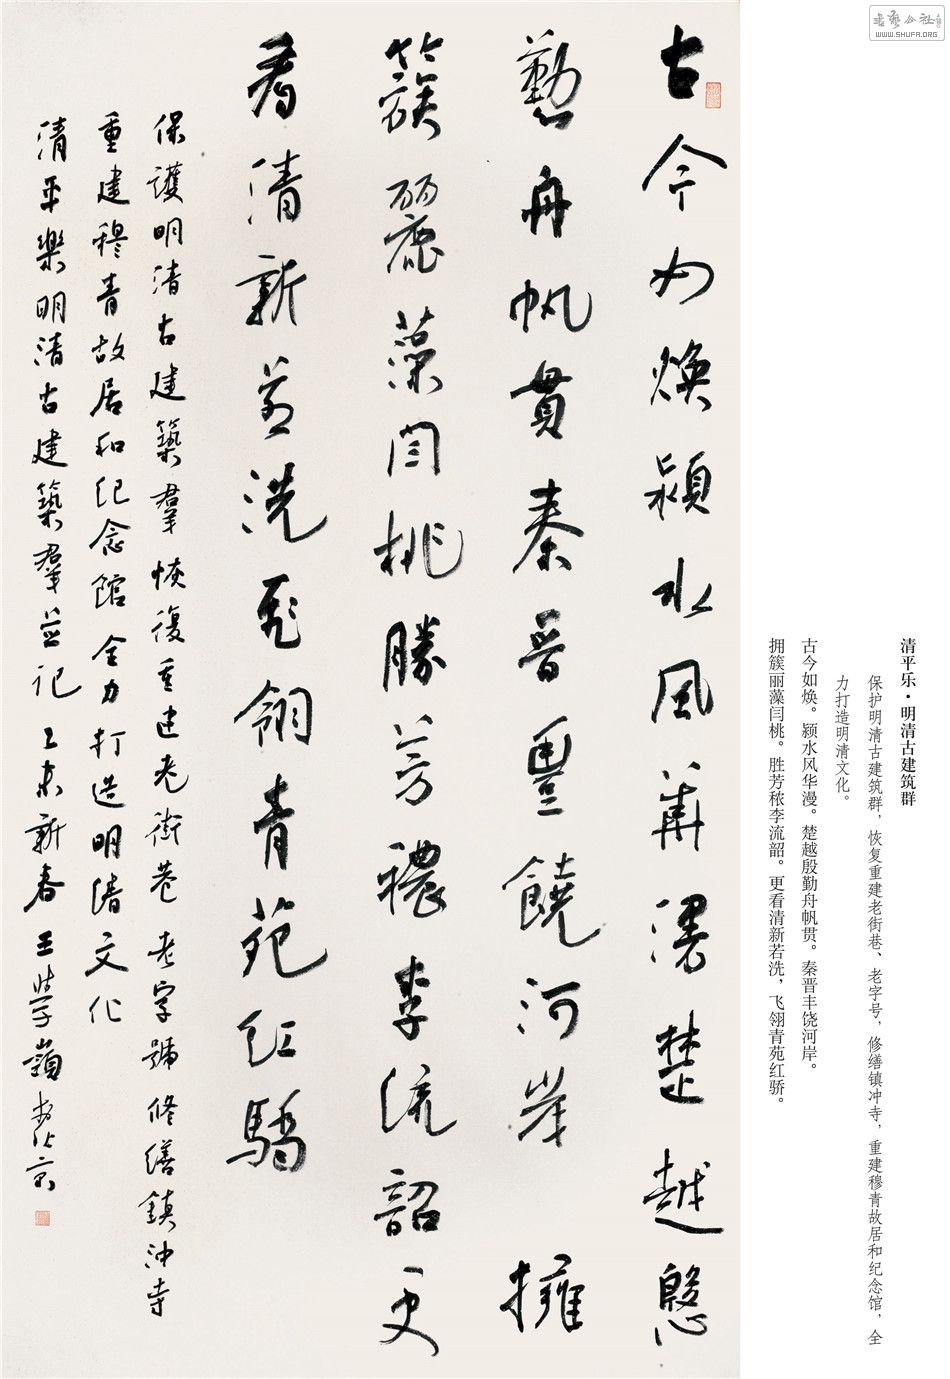 書藝公社
WWW.SHUFA.ORG
清平乐·明清古建筑群
保护明清古建筑群，恢复重建老街巷、老字号，修缮镇冲寺，重建穆青故居和纪念馆，全
力打造明清文化。
古今如焕。颍水风华漫。楚越殷勤舟帆贯。秦晋丰饶河岸。
拥簇丽藻闫桃。胜芳秾李流韶。更看清新若洗，飞翎青苑红骄。
古今如煥潁水風華漫楚越慇
懃舟帆貫秦晉豐饒河岸擁
簇麗藻闫桃勝芳穠李流韶更
看清新若洗飛翎青苑紅驕
保護明清古建築羣恢復重建老街巷老字號修繕鎮沖寺
重建穆青故居和紀念館全力打造明清文化
清平樂明清古建築羣並記乙未新春王學嶺書於京